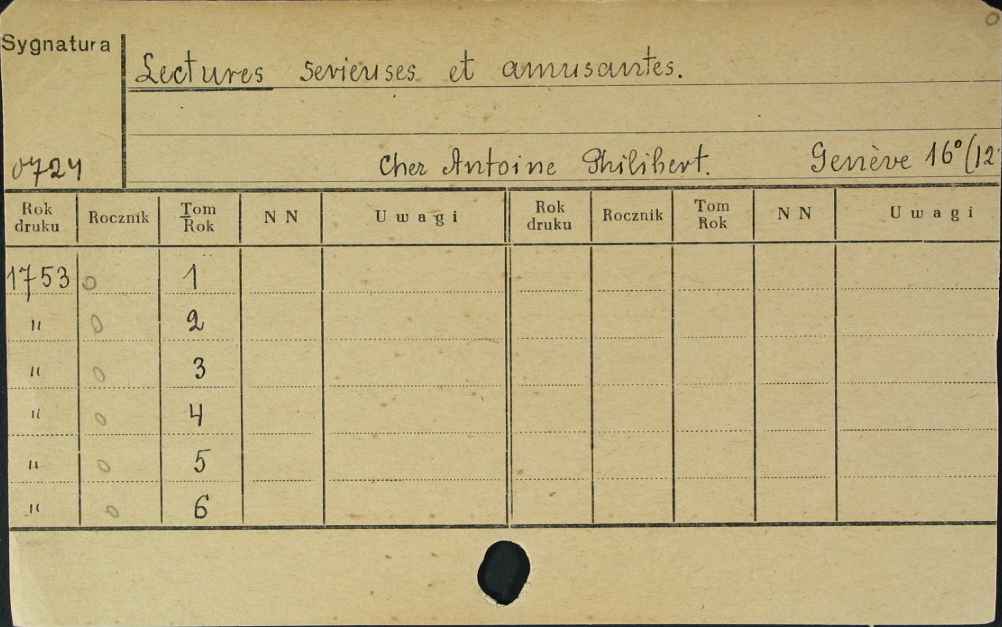 Sygnatura
Lectures serieuses et amusantes.
0724 Cher Antoine Philibert. Genève 16° (12
Rok druku Rocznik Tom Rok N N Uwagi Rok druku Rocznik Tom Rok N N Uwagi
1753 0 1
" 0 2
" 0 3
" 0 4
" 0 5
" 0 6